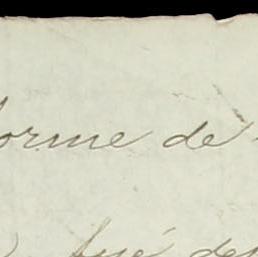 orme de
fué de